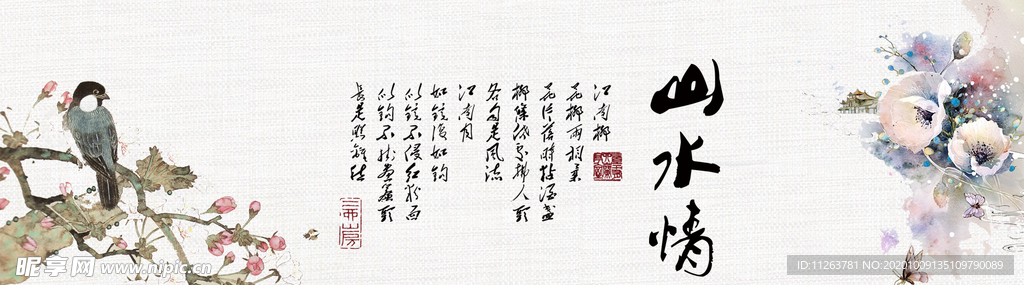 山水情
江南柳
花柳两相柔
花片落时黏酒盏
柳条低处拂人头
各自是风流
江南月
如镜复如钩
似镜不侵红粉面
似钩不挂画帘头
长是照离愁
昵享网 www.nipic.cn
ID:11263781 NO:20201009135109790089